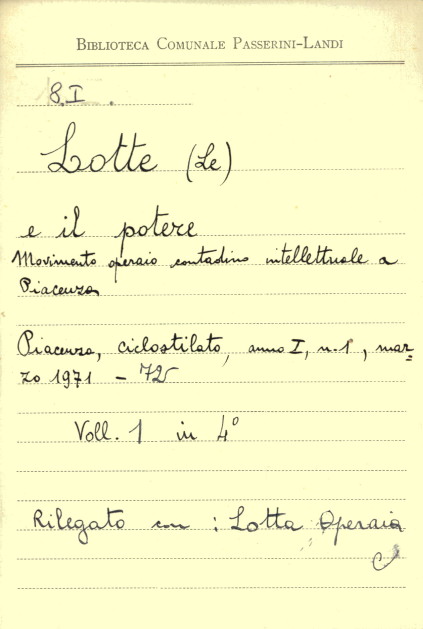 BIBLIOTECA COMUNALE PASSERINI-LANDI
8.I.
Lotte (Le)
e il potere
Movimento operaio contadino intellettuale a
Piacenza
Piacenza, ciclostilato, anno I, n. 1, mar=
zo 1971 - 72
Voll. 1 in 4°
Rilegato con : Lotta Operaia